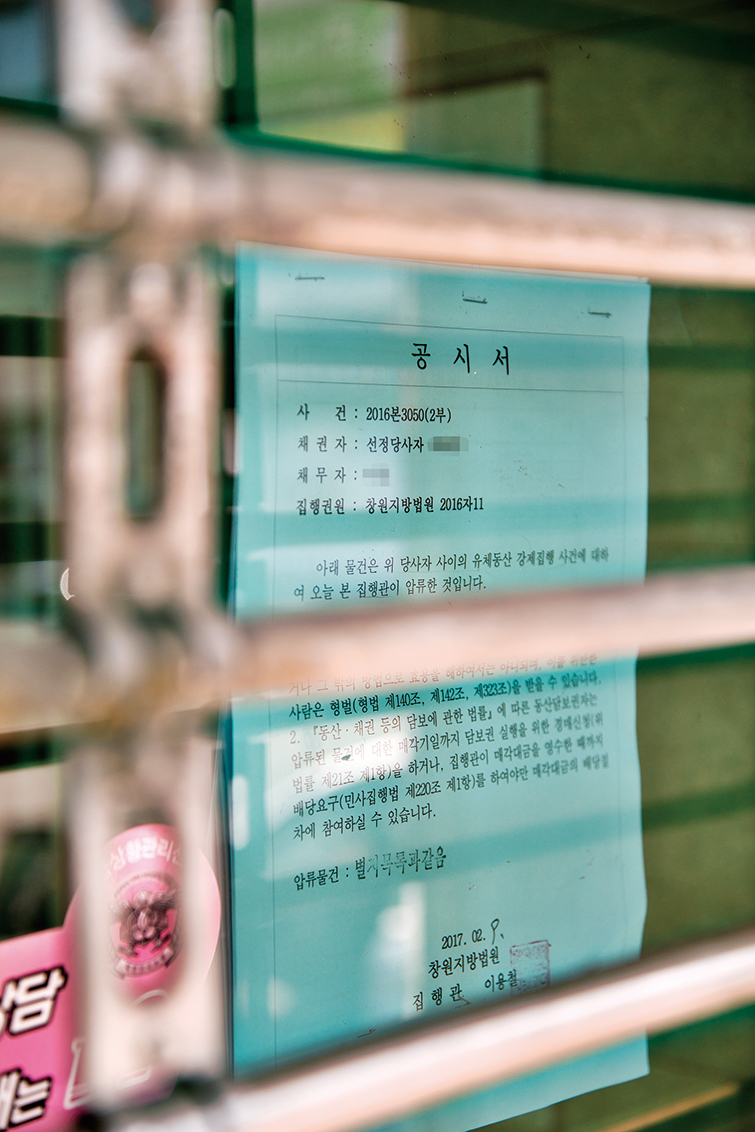 공 시 서
사 건 : 2016본3050(2부)
채 권 자 : 선정당사자
채 무 자 :
집행권원 : 창원지방법원 2016자11
아래 물건은 위 당사자 사이의 유체동산 강제집행 사건에 대하
여 오늘 본 집행관이 압류한 것입니다.
거나 그 밖의 방법으로 효용을 해하여서는 아니되며, 이를 위반한
사람은 형벌(형법 제140조, 제142조, 제323조)을 받을 수 있습니다.
2. 『동산·채권 등의 담보에 관한 법률』에 따른 동산담보권자는
압류된 물건에 대한 매각기일까지 담보권 실행을 위한 경매신청(위
법률 제21조 제1항)을 하거나, 집행관이 매각대금을 영수한 때까지
배당요구(민사집행법 제220조 제1항)를 하여야만 매각대금의 배당절
차에 참여하실 수 있습니다.
압류물건 : 별지목록과같음
2017. 02. 9.
창원지방법원
집 행 관 이용철
상담